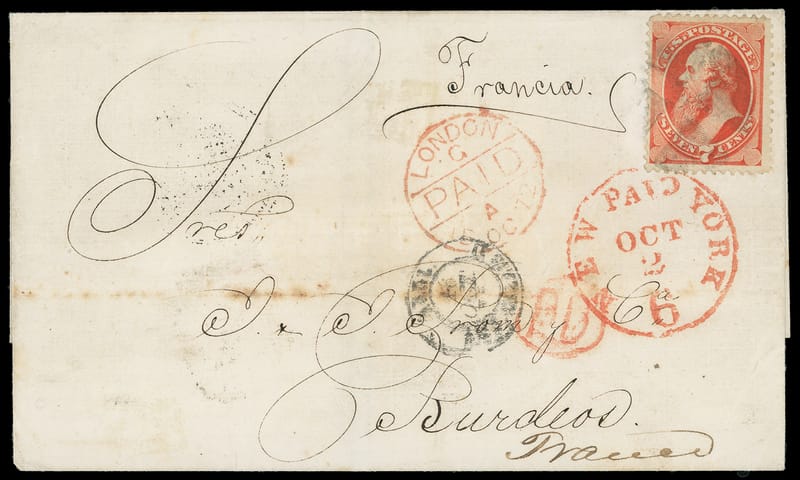 Francia.
U.S. POSTAGE
SEVEN 7 CENTS
LONDON
G
PAID
A
15 OC 72
NEW YORK
PAID
OCT
2
6
Sres
PD
J. & J. y Ca
Burdeos.
France